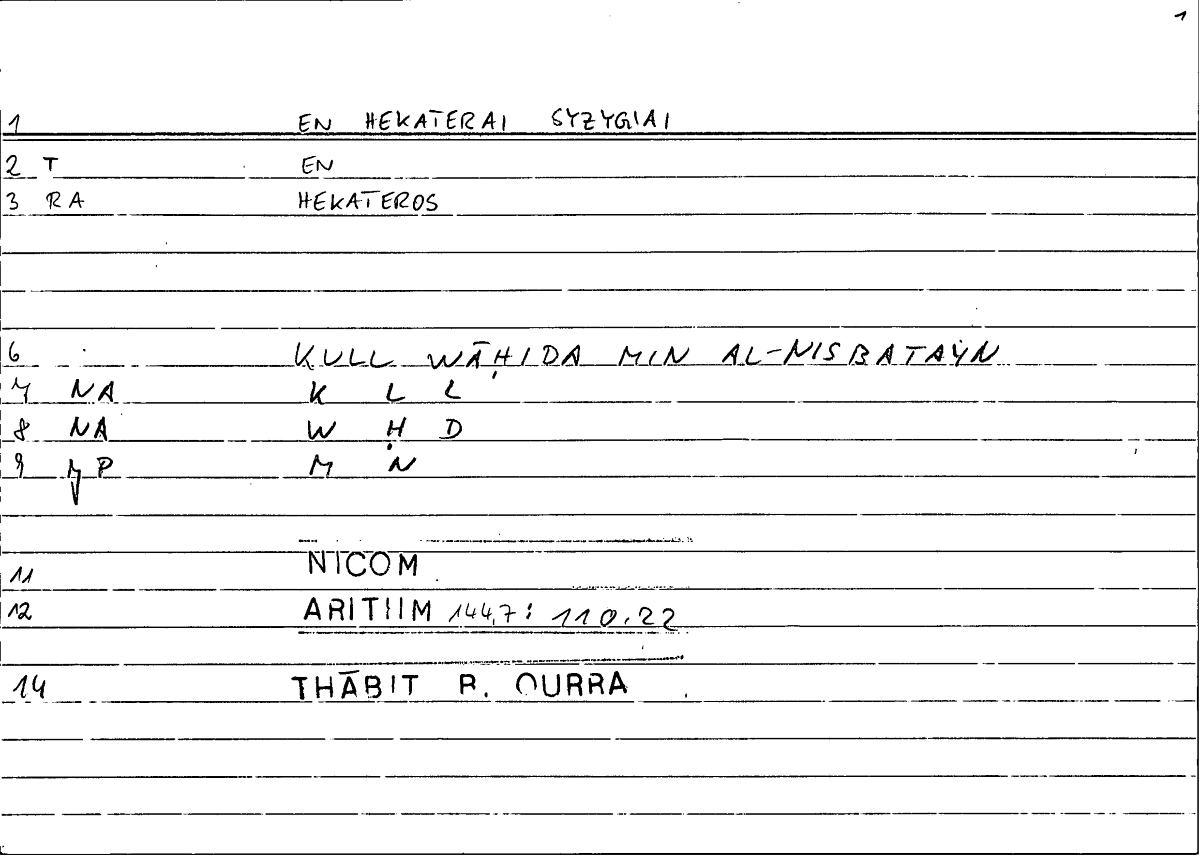 1
1 EN HEKATERAI SYZYGIAI
2 T EN
3 RA HEKATEROS
6 KULL WĀḤIDA MIN AL-NISBATAYN
7 NA K L L
8 NA W Ḥ D
9 P M N
11 NICOM
12 ARITHM 144,7: 110.22
14 THĀBIT B. QURRA